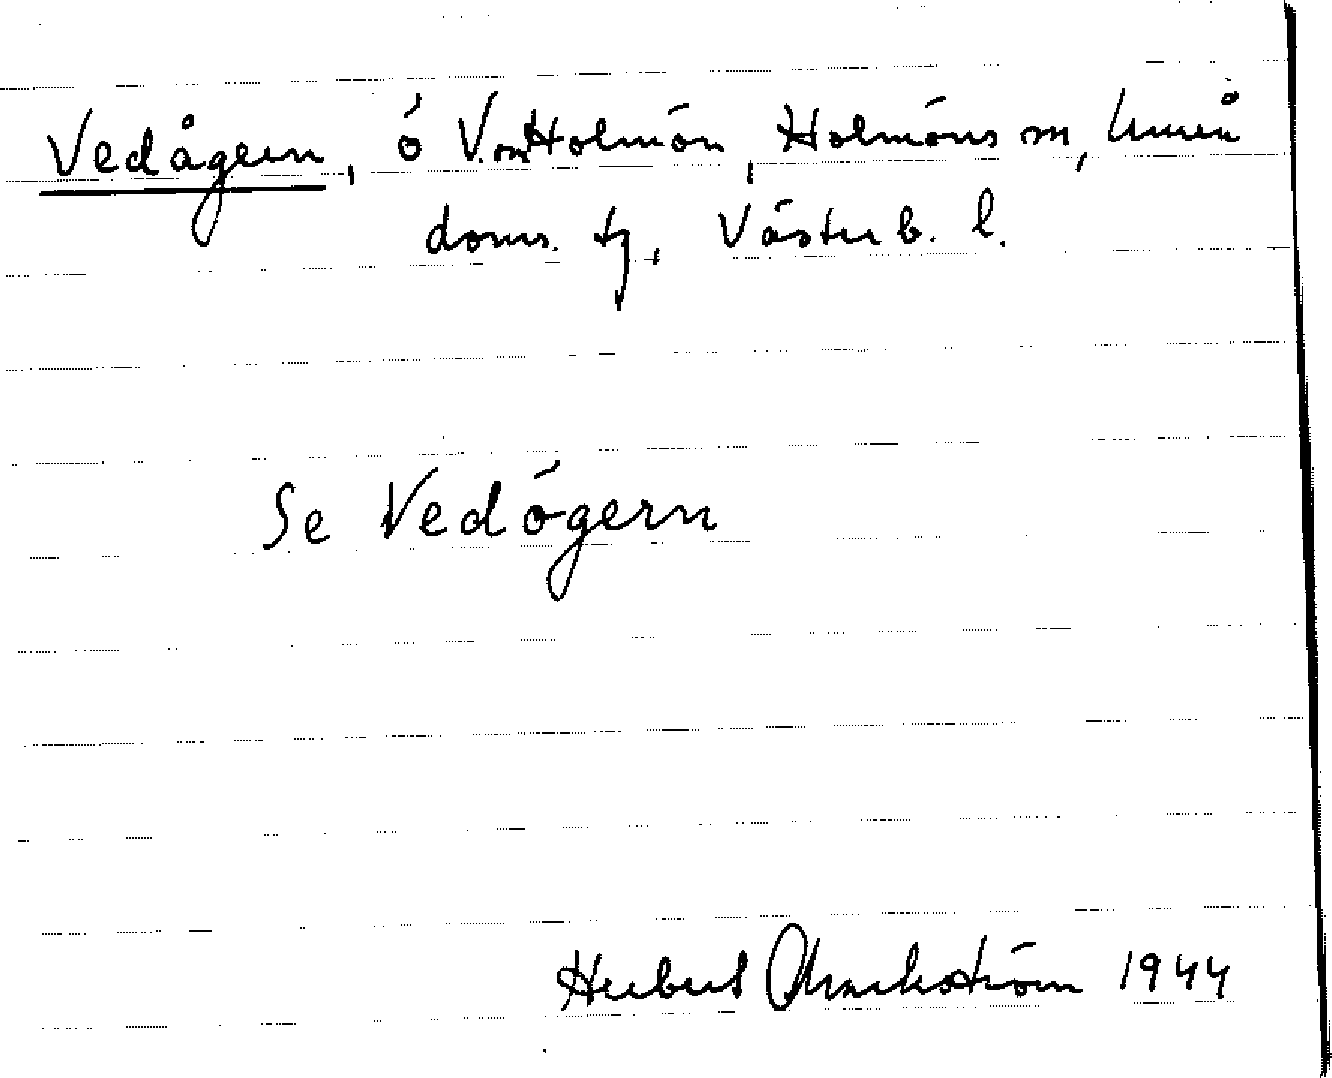 Vedågern, ö V.om Holmön, Holmöns sn, Umeå
doms. tg, Västerb. l.
Se Vedögern
Herbert Markström 1944